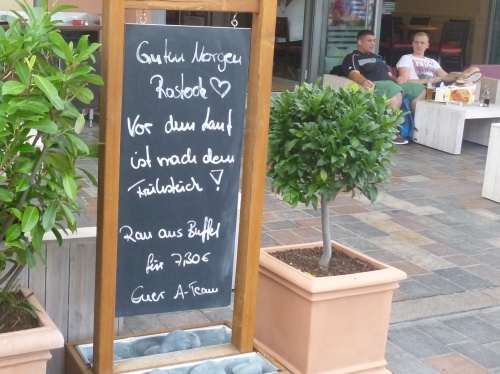 Guten Morgen
Rostock ♡
Vor dem Lauf
ist nach dem
Frühstück !
Ran ans Buffet
für 7,30 €
Euer A-Team